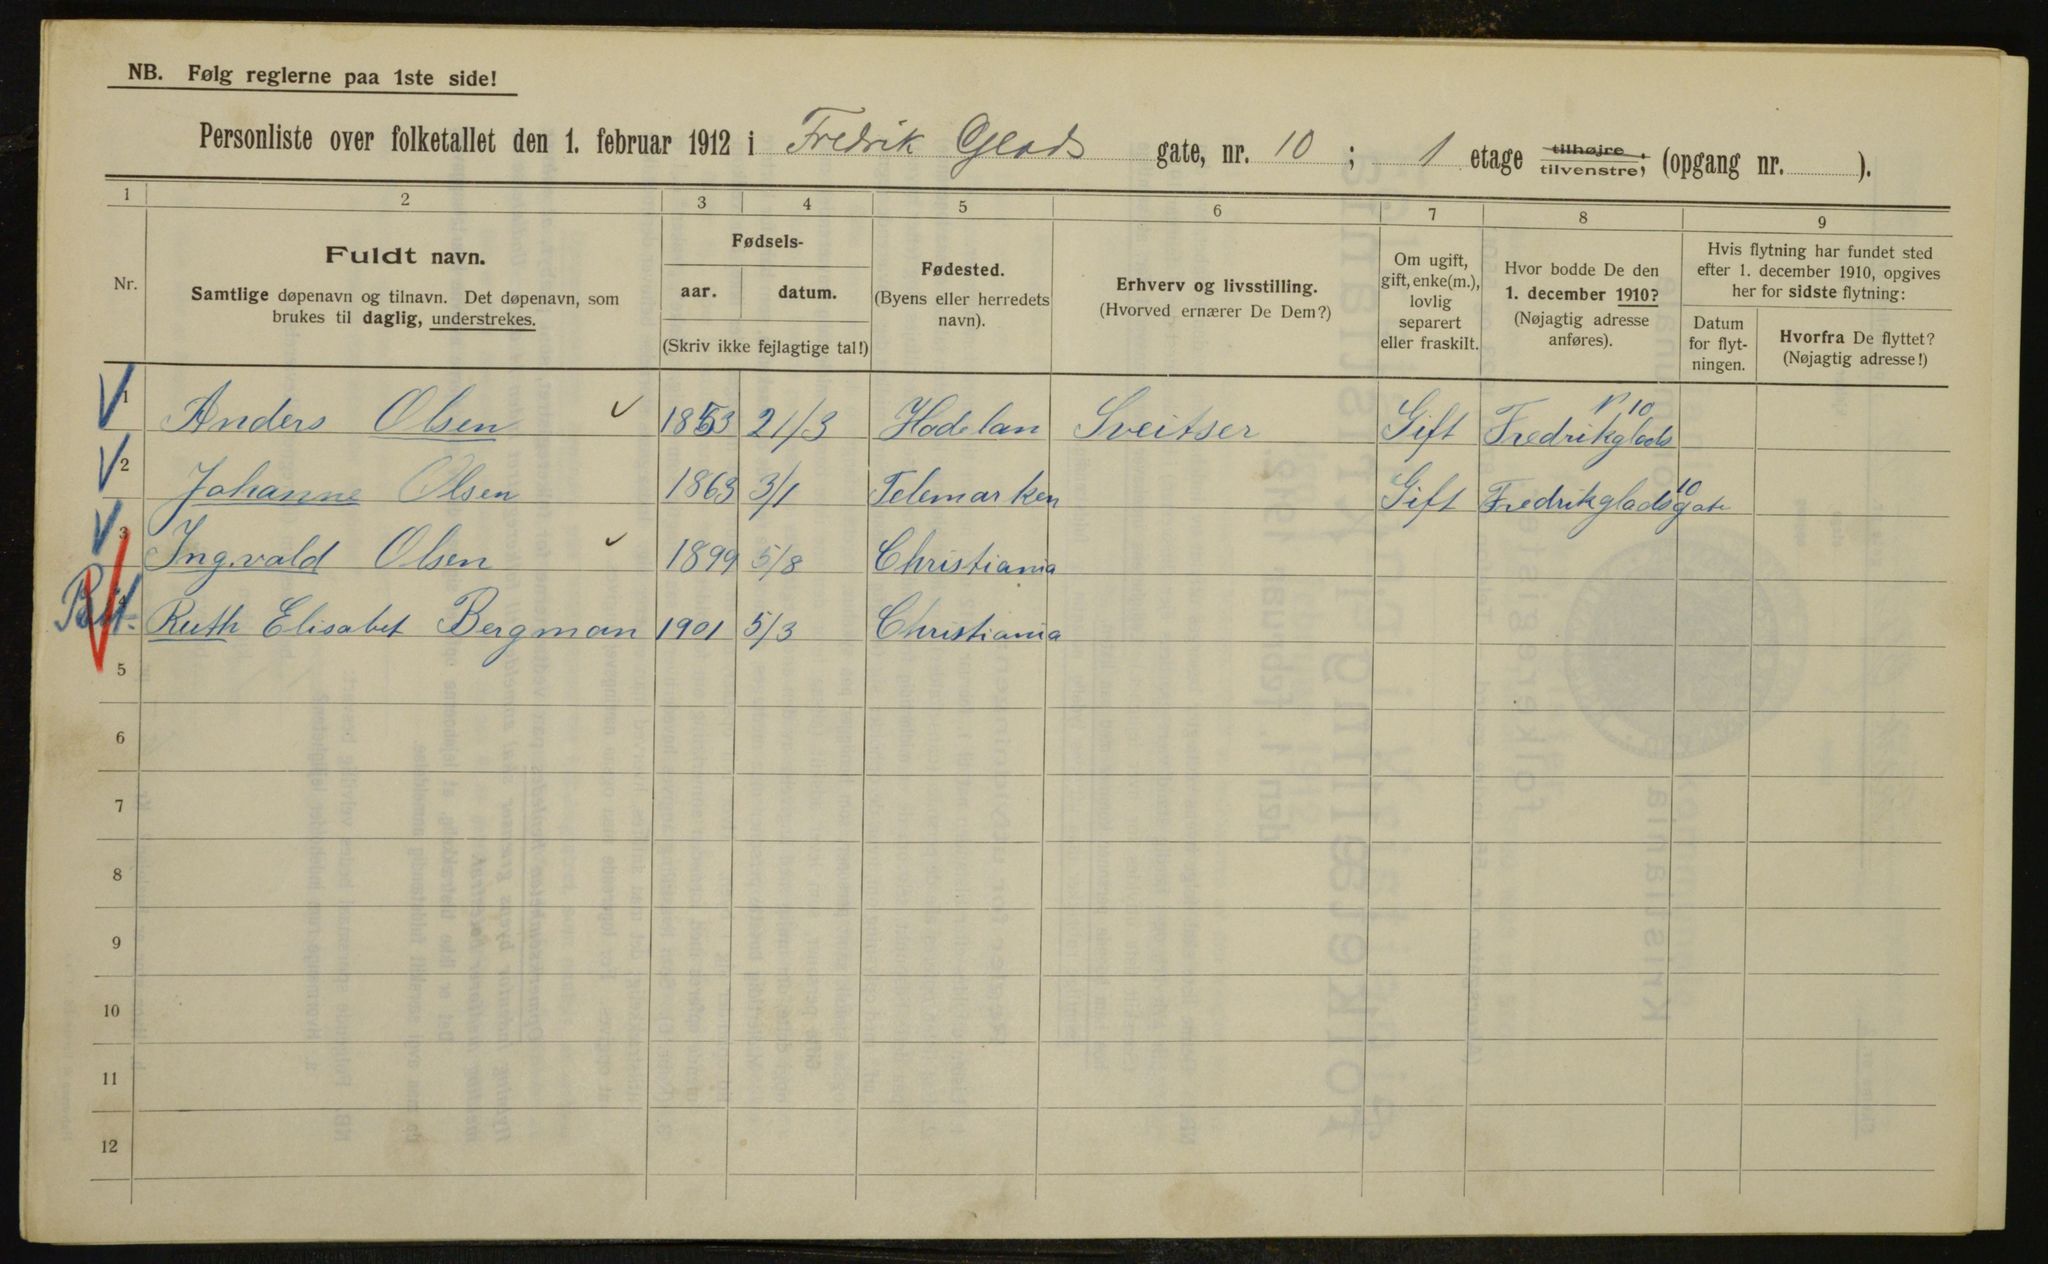 NB. Følg reglerne paa 1ste side!
Personliste over folketallet den 1. februar 1912 i Fredrik Glads gate, nr. 10 ; 1 etage tilhøjre, tilvenstre; (opgang nr. ).
1 2 3 4 5 6 7 8 9
Nr.
Fuldt navn.
Samtlige døpenavn og tilnavn. Det døpenavn, som
brukes til daglig, understrekes.
Fødsels-
aar. datum.
(Skriv ikke fejlagtige tal!)
Fødested.
(Byens eller herredets
navn).
Erhverv og livsstilling.
(Hvorved ernærer De Dem?)
Om ugift,
gift, enke(m.),
lovlig
separert
eller fraskilt.
Hvor bodde De den
1. december 1910?
(Nøjagtig adresse
anføres).
Hvis flytning har fundet sted
efter 1. december 1910, opgives
her for sidste flytning:
Datum
for flyt-
ningen.
Hvorfra De flyttet?
(Nøjagtig adresse!)
1 Anders Olsen 1853 21/3 Hadelan Sveitser Gift Fredrikglads N 10
2 Johanne Olsen 1863 3/1 Telemarken Gift Fredrikgladsgate 10
3 Ingvald Olsen 1899 5/8 Christiania
4 Ruth Elisabet Bergman 1901 5/3 Christiania
5
6
7
8
9
10
11
12